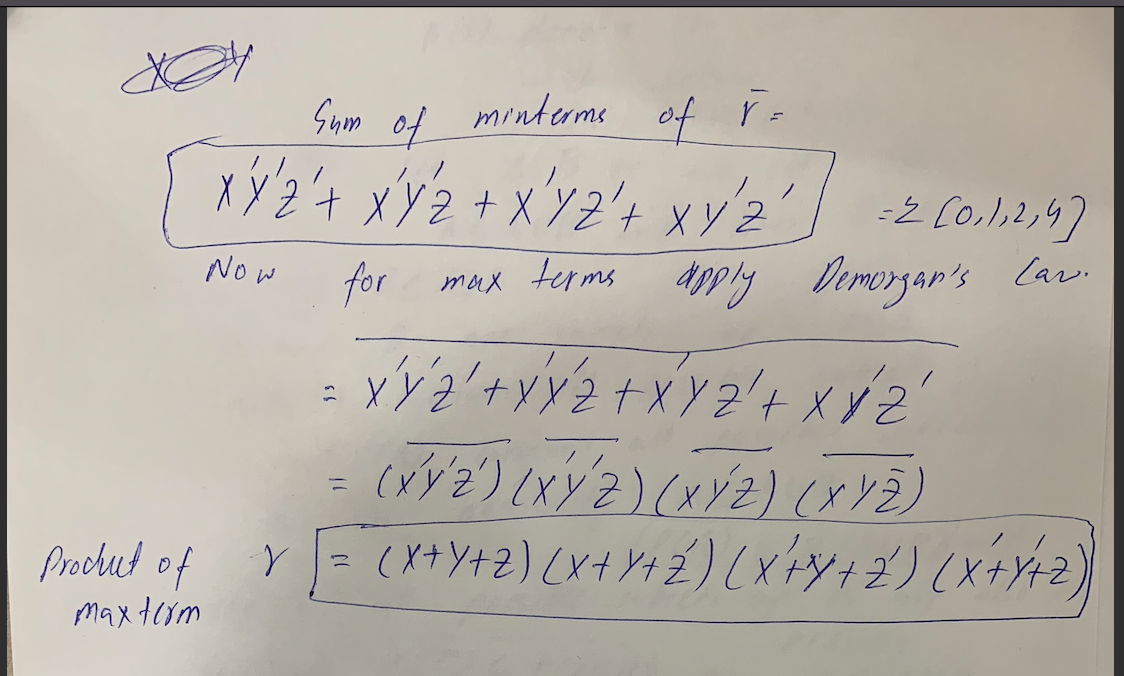 Sum of minterms of r̄ =
X'Y'Z' + X'Y'Z + X'YZ' + XY'Z' = Σ [0,1,2,4]
Now for max terms apply Demorgan's Law.
= X'Y'Z' + X'Y'Z + X'YZ' + XY'Z'
= (X'Y'Z') (X'Y'Z) (XY'Z) (XYZ̄)
Product of max term r = (X+Y+Z) (X+Y+Z') (X'+Y+Z') (X'+Y'+Z)